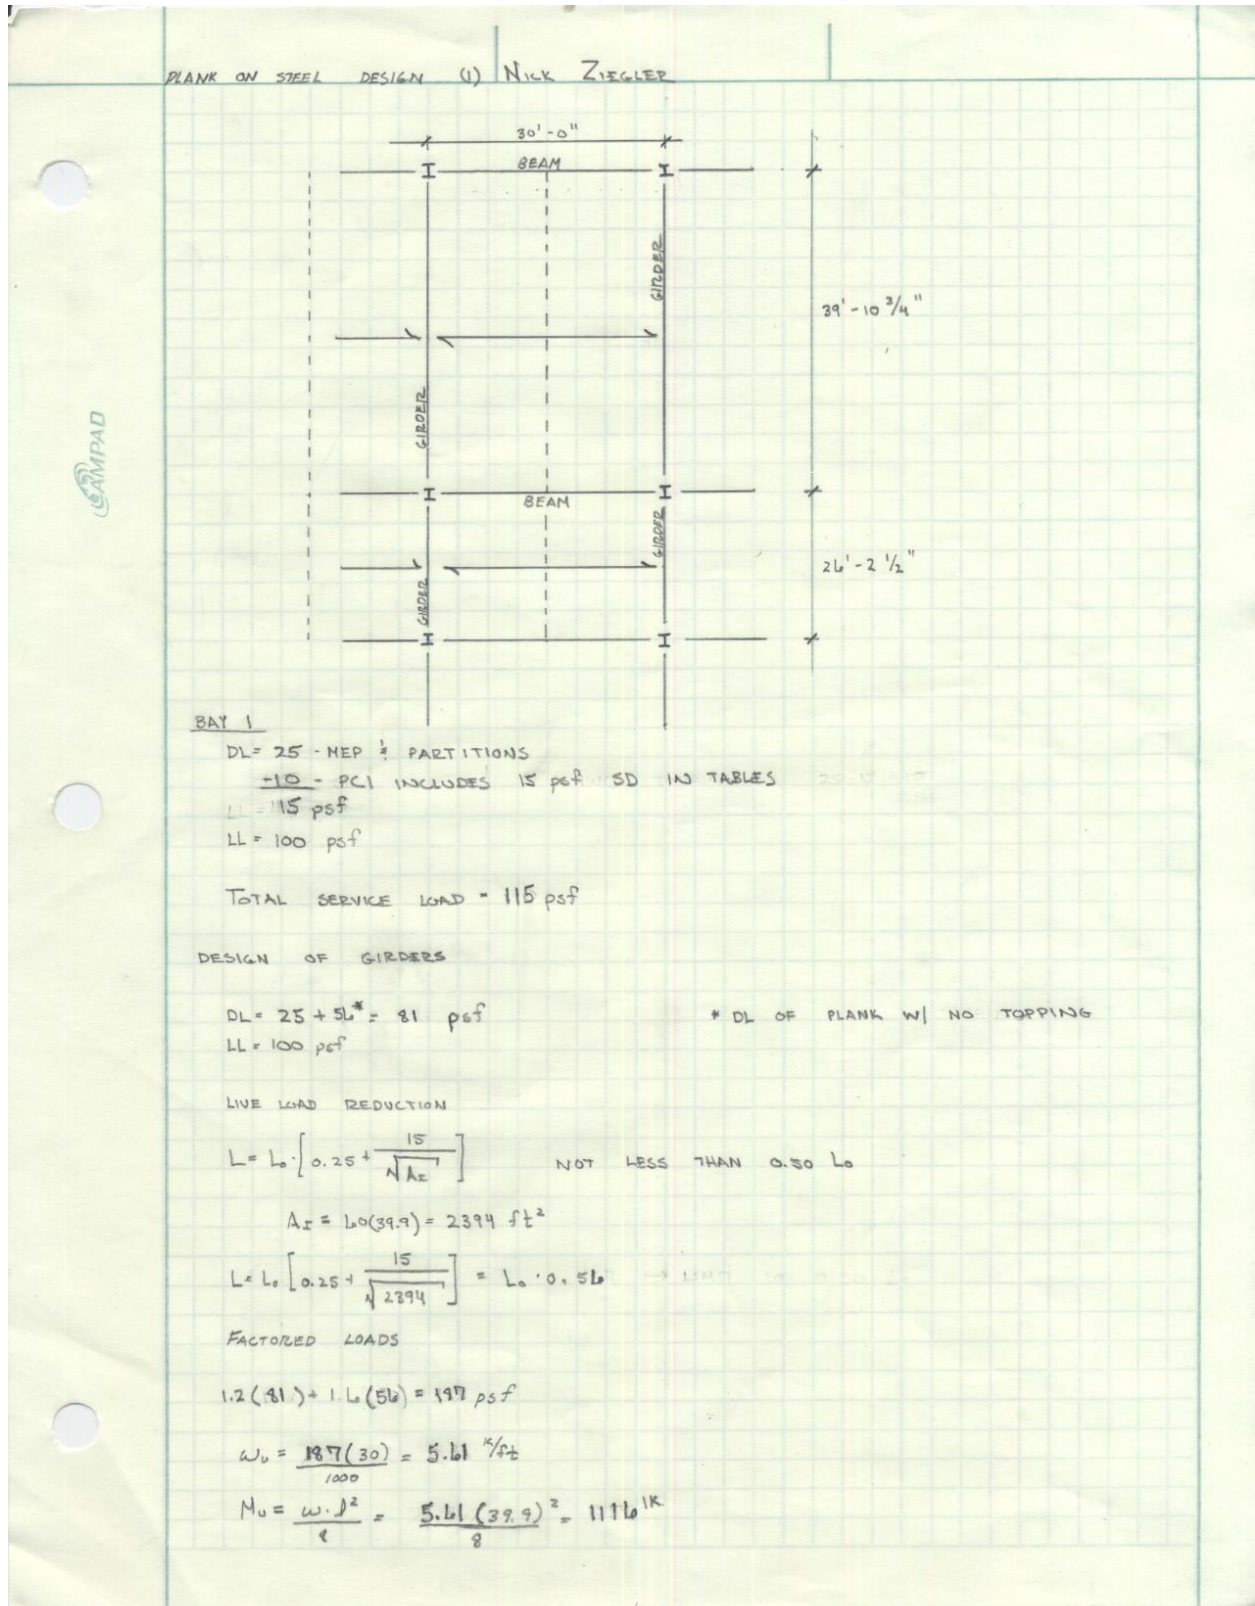 PLANK ON STEEL DESIGN (1) NICK ZIEGLER
30'-0"
BEAM
GIRDER
39'-10 3/4"
GIRDER
CAMPAD
BEAM
GIRDER
26'-2 1/2"
GIRDER
BAY 1
DL = 25 - MEP & PARTITIONS
-10 - PCI INCLUDES 15 psf SD IN TABLES
15 psf
LL = 100 psf
TOTAL SERVICE LOAD = 115 psf
DESIGN OF GIRDERS
DL = 25 + 56* = 81 psf * DL OF PLANK W/ NO TOPPING
LL = 100 psf
LIVE LOAD REDUCTION
L = L₀·[0.25 + 15/√A_I] NOT LESS THAN 0.50 L₀
A_I = 60(39.9) = 2394 ft²
L = L₀ [0.25 + 15/√2394] = L₀ · 0.56
FACTORED LOADS
1.2(81) + 1.6(56) = 187 psf
ωᵤ = 187(30)/1000 = 5.61 K/ft
Mᵤ = ω·l²/8 = 5.61(39.9)²/8 = 1116 'K